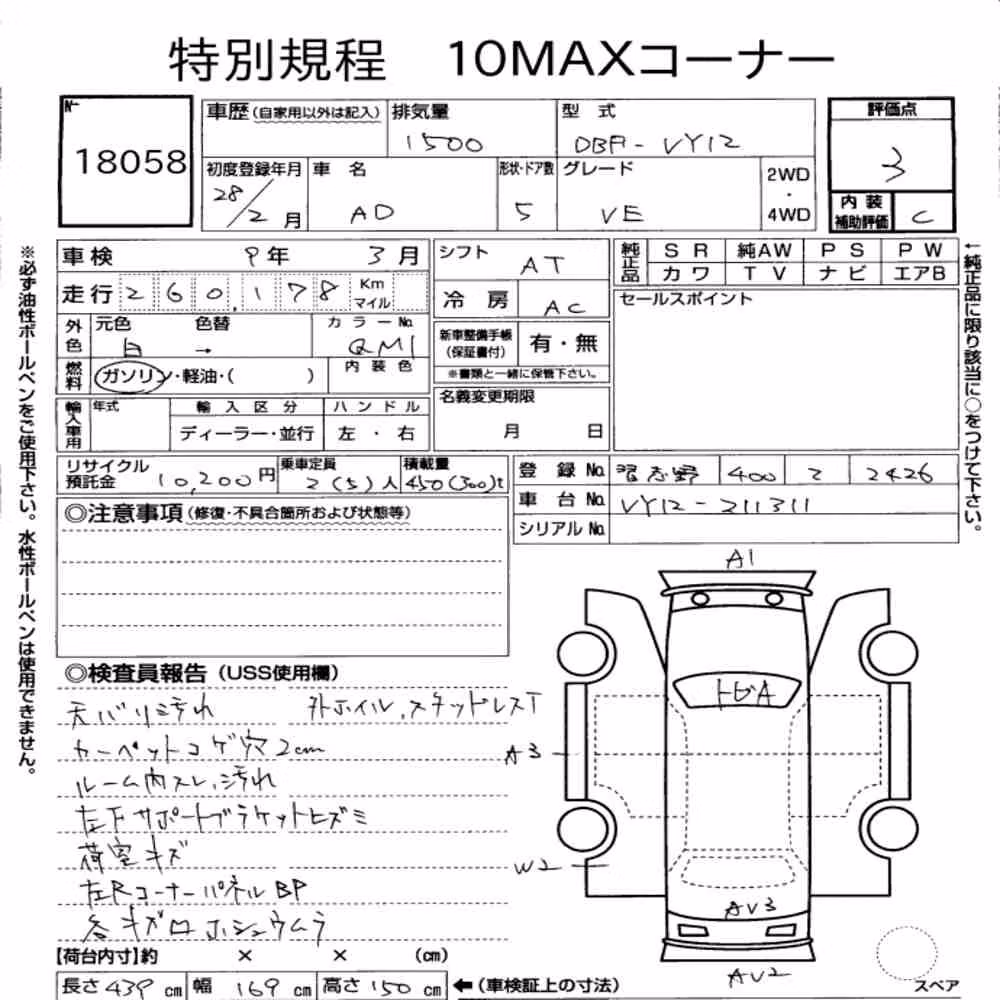 特別規程 10MAXコーナー
No
18058
車歴(自家用以外は記入)
排気量
1500
型 式
DBA-VY12
評価点
3
内装補助評価
C
初度登録年月
28/2月
車 名
AD
形状・ドア数
5
グレード
VE
2WD・4WD
車検 9年 3月
走行 260,178 Km マイル
外色
元色 白
色替 →
カラーNo.
QM1
燃料
ガソリン・軽油・( )
内装色
輸入車用
年式
輸入区分
ディーラー・並行
ハンドル
左・右
シフト
AT
冷房
AC
新車整備手帳(保証書付)
有・無
※書類と一緒に保管下さい。
名義変更期限
月 日
純正品
SR 純AW PS PW
カワ TV ナビ エアB
セールスポイント
←純正品に限り該当に○をつけて下さい。
※必ず油性ボールペンをご使用下さい。水性ボールペンは使用できません。
リサイクル預託金
10,200円
乗車定員
2(5)人
積載量
450(300)t
登録No. 習志野 400 2426
車台No. VY12-211311
シリアルNo.
◎注意事項(修復・不具合箇所および状態等)
◎検査員報告(USS使用欄)
天バリ汚れ 外ホイル、スタッドレスT
カーペットコゲ穴2cm
ルーム内スレ、汚れ
左下サポートブラケットヒズミ
荷室キズ
左Rコーナーパネル BP
各キズロホシュウムラ
【荷台内寸】約 × × (cm)
長さ 439 cm 幅 169 cm 高さ 150 cm ←(車検証上の寸法)
A1
トビA
A3
W2
AV3
AV2
スペア